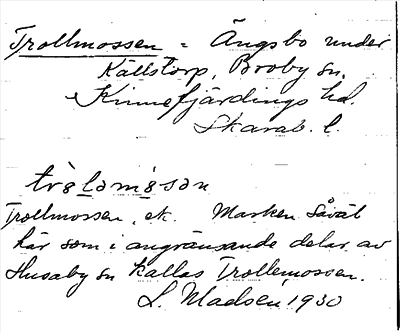 Trollmossen = Ängsbo under
Källstorp, Broby sn,
Kinnefjärdings hd.
Skarab. l.
trò̀lamàsən
Trollmossen, ek. Marken såväl
här som i angränsande delar av
Husaby sn kallas Trollemossen.
L. Madsén, 1930